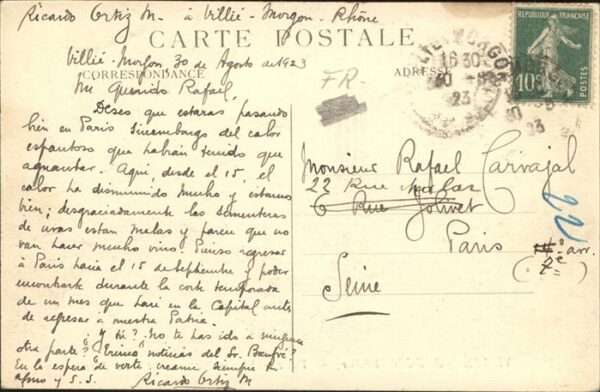 Ricardo Ortiz M. à Villié-Morgon-Rhône
CARTE POSTALE
Villié-Morgon 30 de Agosto de 1923
CORRESPONDANCE
ADRESSE
FR-
M Querido Rafael,
Deseo que estaras pasando
bien en Paris sinembargo del calor
espantoso que habrán tenido que
aguantar. Aqui, desde el 15, el
calor ha disminuido mucho y estamos
bien; desgraciadamente las sementeras
de uvas estan malas y parece que no
van hacer mucho vino. Pienso regresar
à Paris hacia el 15 de Septiembre y poder
encontrarte durante la corta temporada
de un mes que haré en la Capital antes
de regresar a nuestra Patria.
Y tú? No te has ido a ninguna
otra parte? noticias del Sr.
En la espera de verte, creame siempre tu
afmo y S. S. Ricardo Ortiz M
REPUBLIQUE FRANÇAISE
10c
POSTES
16 30
30 -8
23
Monsieur Rafael Carvajal
23 Rue
6 Rue Jolivet
Paris
7e arr.
Seine
22